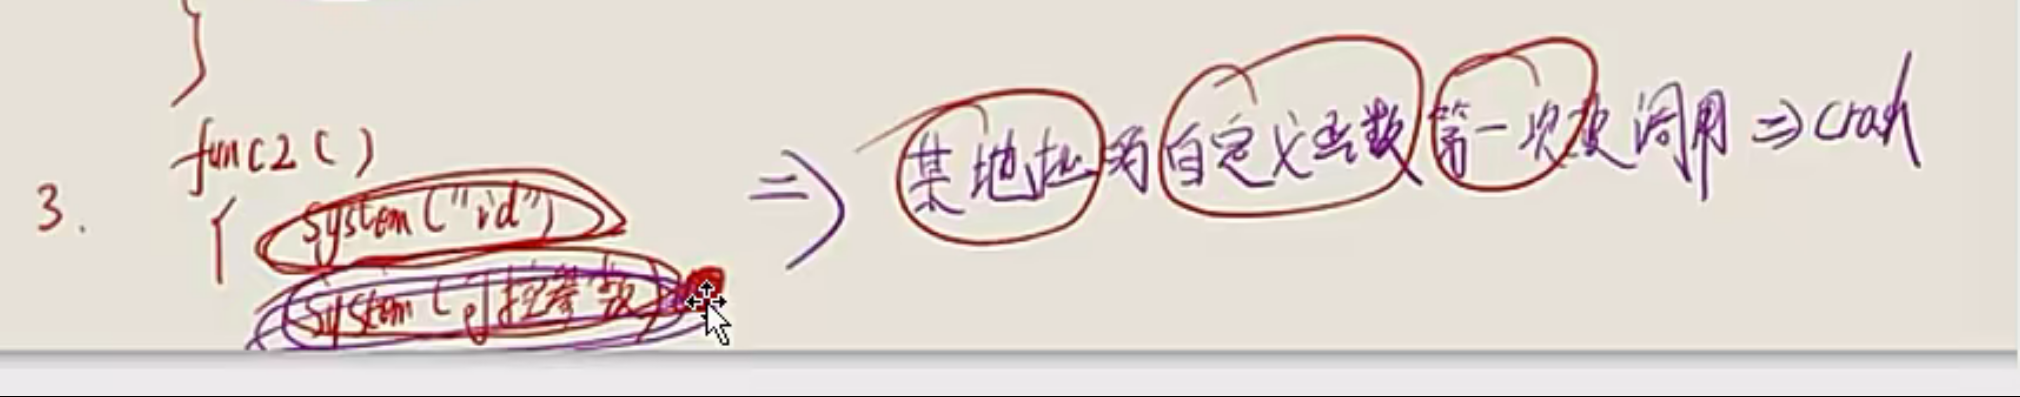 }
func2()
3.
{ system("id")
system(可控参数)
=> 某地址为自定义函数第一次被调用 => crash